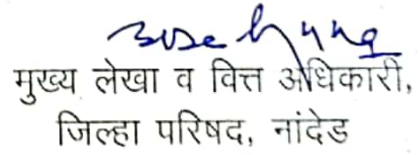 मुख्य लेखा व वित्त अधिकारी,
जिल्हा परिषद, नांदेड